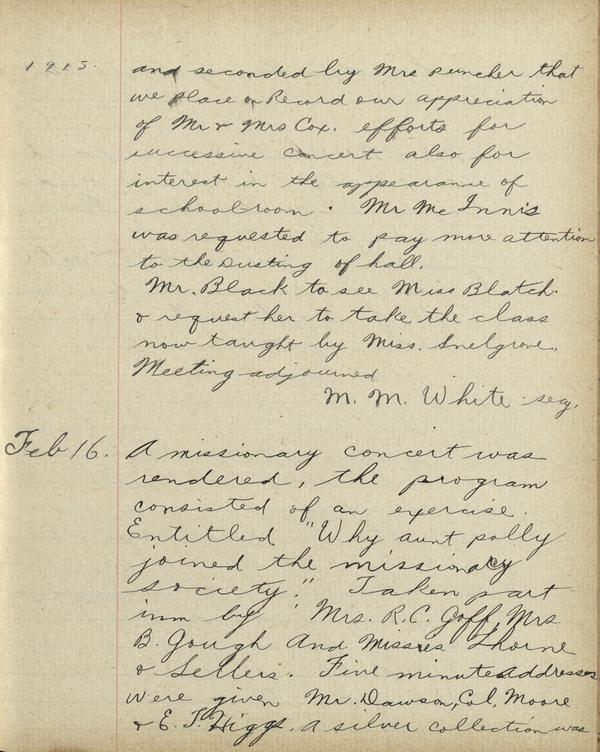 1915.
and seconded by Mrs Puncher that
we place on Record our appreciation
of Mr & Mrs Cox. efforts for
successive concert also for
interest in the appearance of
schoolroom. Mr McInnis
was requested to pay more attention
to the Dusting of hall.
Mr. Black to see Miss Blatch.
& request her to take the class
now taught by Miss. Snelgrove.
Meeting adjourned
M. M. White secy.
Feb 16. A missionary concert was
rendered, the program
consisted of an exercise.
Entitled "Why aunt polly
joined the missionary
society." Taken part
inn by Mrs. R. C. Goff, Mrs
B. Gough And Missres Thorne
& Sellers. Five minute Addresses
were given Mr. Dawson, Col. Moore
& E. J. Higgs. A silver collection was